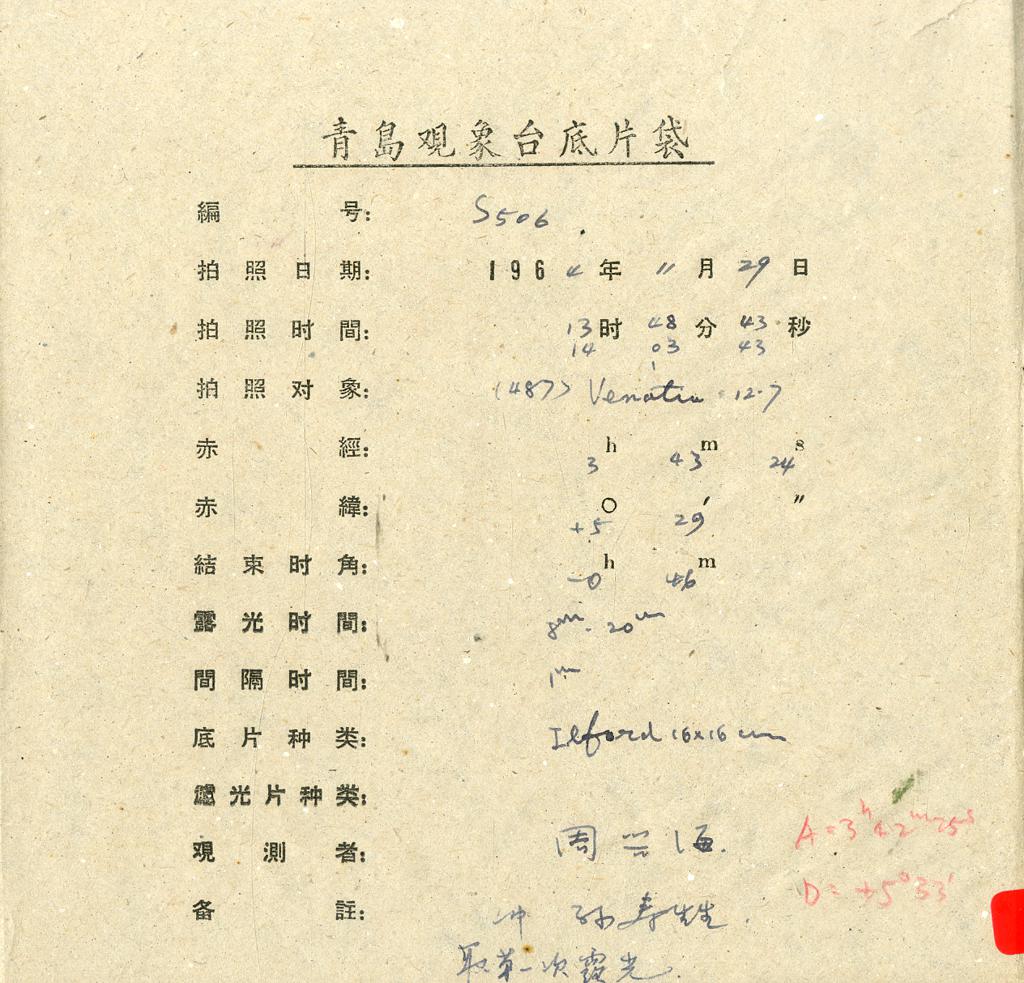 青島观象台底片袋
編号: S506
拍照日期: 1964年 11月 29日
拍照时間: 13时 48分 43秒
14 03 43
拍照对象: (487) Venetia 12.7
赤經: 3h 43m 24s
赤緯: +5° 29′ ″
結束时角: -0h 46m
露光时間: 8m. 20m
間隔时間: 1m
底片种类: Ilford 16x16 cm
濾光片种类:
观測者: 周兴海.
A=3h42m25s
D=+5°33′
备註: 冲 孙寿
取第一次露光.